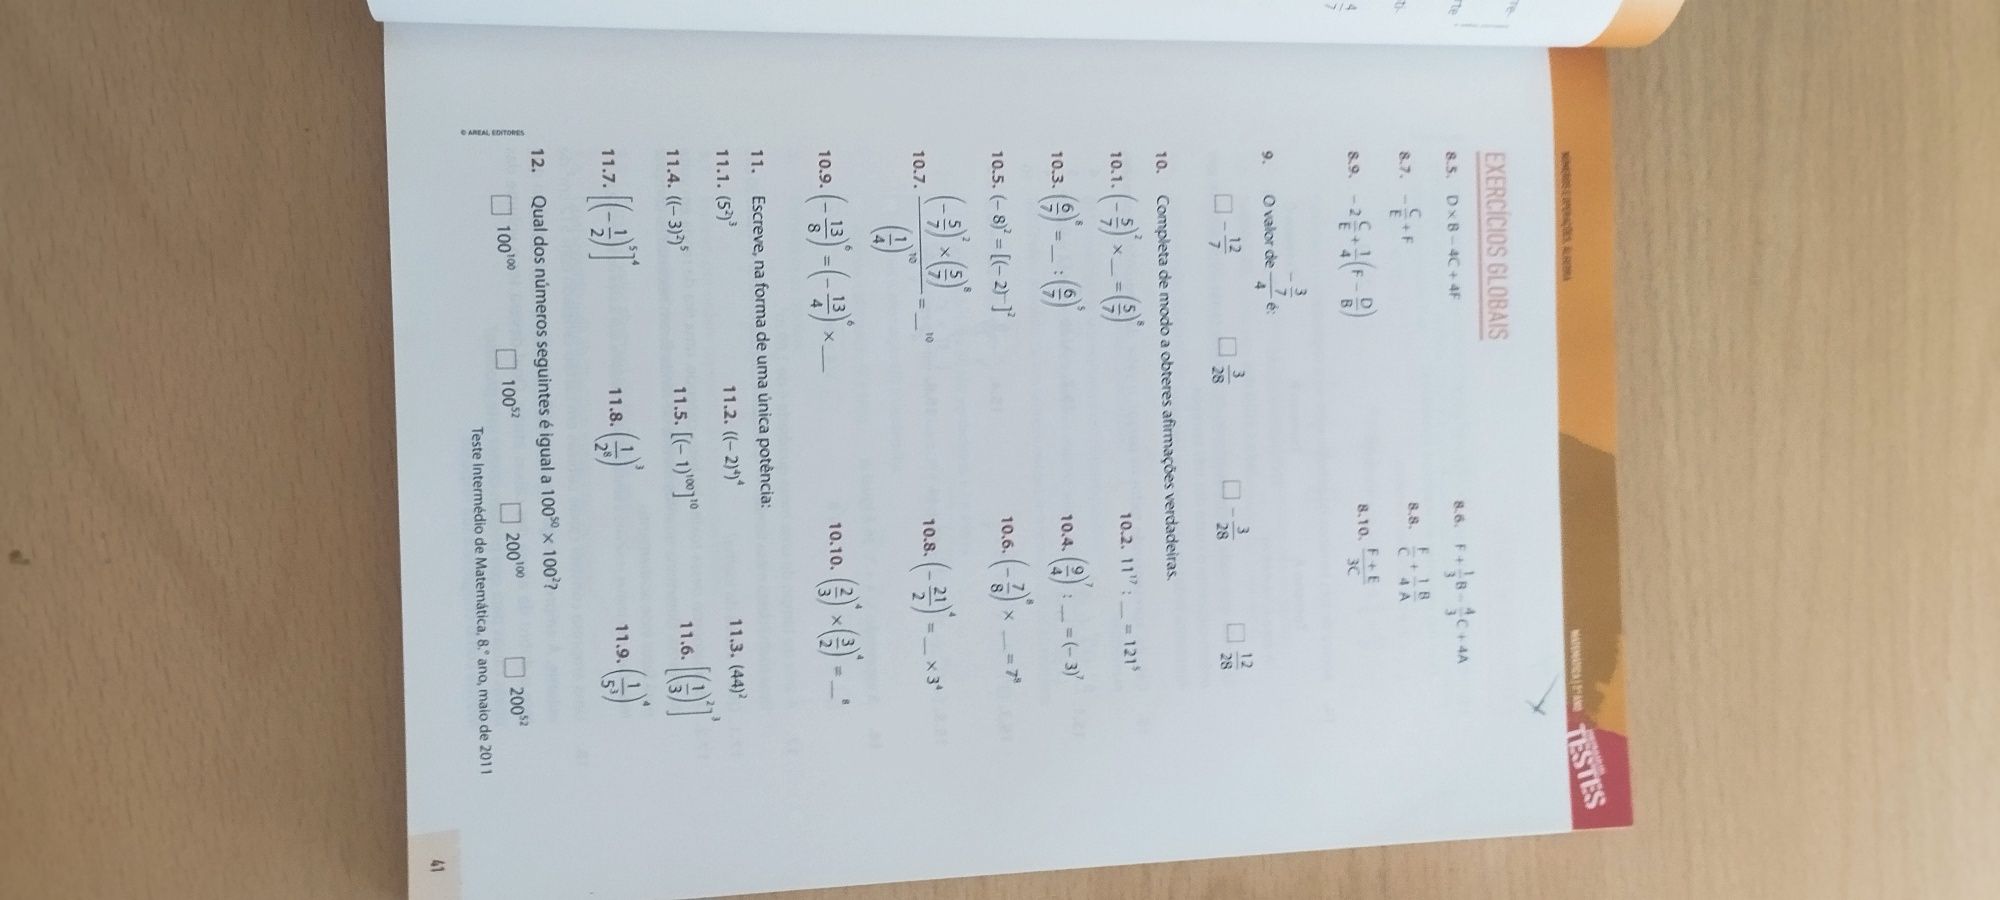 NÚMEROS E OPERAÇÕES. ÁLGEBRA
MATEMÁTICA | 8.º ANO
TESTES
EXERCÍCIOS GLOBAIS
8.5. D × B – 4C + 4F
8.6. F + 1/3 B – 4/3 C + 4A
8.7. – C/E + F
8.8. F/C + 1/4 B/A
8.9. – 2 C/E + 1/4 (F – D/B)
8.10. (F + E)/(3C)
9. O valor de (– 3/7)/4 é:
☐ – 12/7 ☐ 3/28 ☐ – 3/28 ☐ 12/28
10. Completa de modo a obteres afirmações verdadeiras.
10.1. (– 5/7)² × __ = (5/7)⁸
10.2. 11¹⁷ : __ = 121⁵
10.3. (6/7)⁸ = __ : (6/7)⁵
10.4. (9/4)⁷ : __ = (– 3)⁷
10.5. (– 8)² = [(– 2)⁻]²
10.6. (– 7/8)⁸ × __ = 7⁸
10.7. ((– 5/7)² × (5/7)⁸)/(1/4)¹⁰ = __¹⁰
10.8. (– 21/2)⁴ = __ × 3⁴
10.9. (– 13/8)⁶ = (– 13/4)⁶ × __
10.10. (2/3)⁴ × (3/2)⁴ = __⁸
11. Escreve, na forma de uma única potência:
11.1. (5²)³
11.2. ((– 2)⁴)⁴
11.3. (44)²
11.4. ((– 3)²)⁵
11.5. [(– 1)¹⁰⁰]¹⁰
11.6. [(1/3)²]³
11.7. [(– 1/2)⁵]⁴
11.8. (1/2⁸)³
11.9. (1/5³)⁴
12. Qual dos números seguintes é igual a 100⁵⁰ × 100²?
☐ 100¹⁰⁰ ☐ 100⁵² ☐ 200¹⁰⁰ ☐ 200⁵²
Teste Intermédio de Matemática, 8.º ano, maio de 2011
© AREAL EDITORES
41